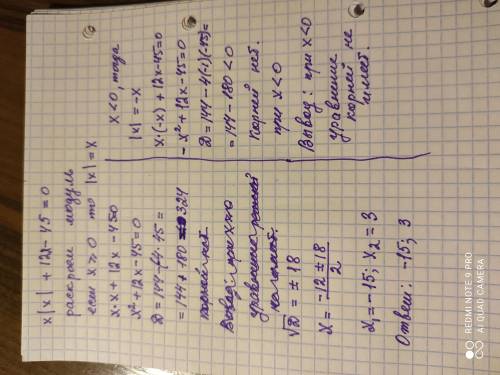 x|x| + 12x - 45 = 0
раскроем модуль
если x ≥ 0 то |x| = x
x·x + 12x - 450
x² + 12x - 45 = 0
= 144 + 180 = 324
Вывод: при x>0
уравнение
√D = ± 18
x = -12 ± 18 / 2
x₁ = -15; x₂ = 3
Ответ: -15; 3
x < 0, тогда
|x| = -x
x·(-x) + 12x - 45 = 0
- x² + 12x - 45 = 0
D = 144 - 4(-1)(-45) =
= 144 - 180 < 0
Корней нет.
при x < 0
Вывод: при x < 0
уравнение
корней не
имеет.
REDMI NOTE 9 PRO
AI QUAD CAMERA